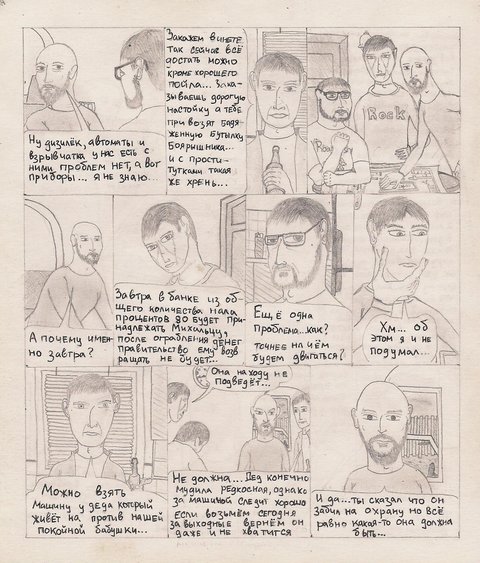 Ну дизилёк, автоматы и
взрывчатка у нас есть с
ними проблем нет, а вот
приборы... я не знаю...
Закажем в инете
так сейчас всё
достать можно
кроме хорошего
пойла... Зака-
зываешь дорогую
настойку а тебе
привозят бадя-
женную бутылку
Боярышника...
и с прости-
тутками такая
же хрень...
Rock
Rock
А почему имен-
но завтра?
Завтра в банке из об
щего количества нала
процентов 80 будет при-
надлежать Михалычу,
после ограбления денег
правительство ему возв
ращать не будет...
Ещё одна
проблема...как?
точнее на чём
будем двигаться?
Хм... об
этом я и не
подумал...
Можно взять
машину у деда который
живёт на против нашей
покойной бабушки...
Она на ходу не
подведёт...
Не должна... Дед конечно
мудила редкосная, однако
за машиной следит хорошо
если возьмём сегодня
за выходные вернём он
даже и не хватится
И да...ты сказал что он
забил на охрану но всё
равно какая-то она должна
быть...